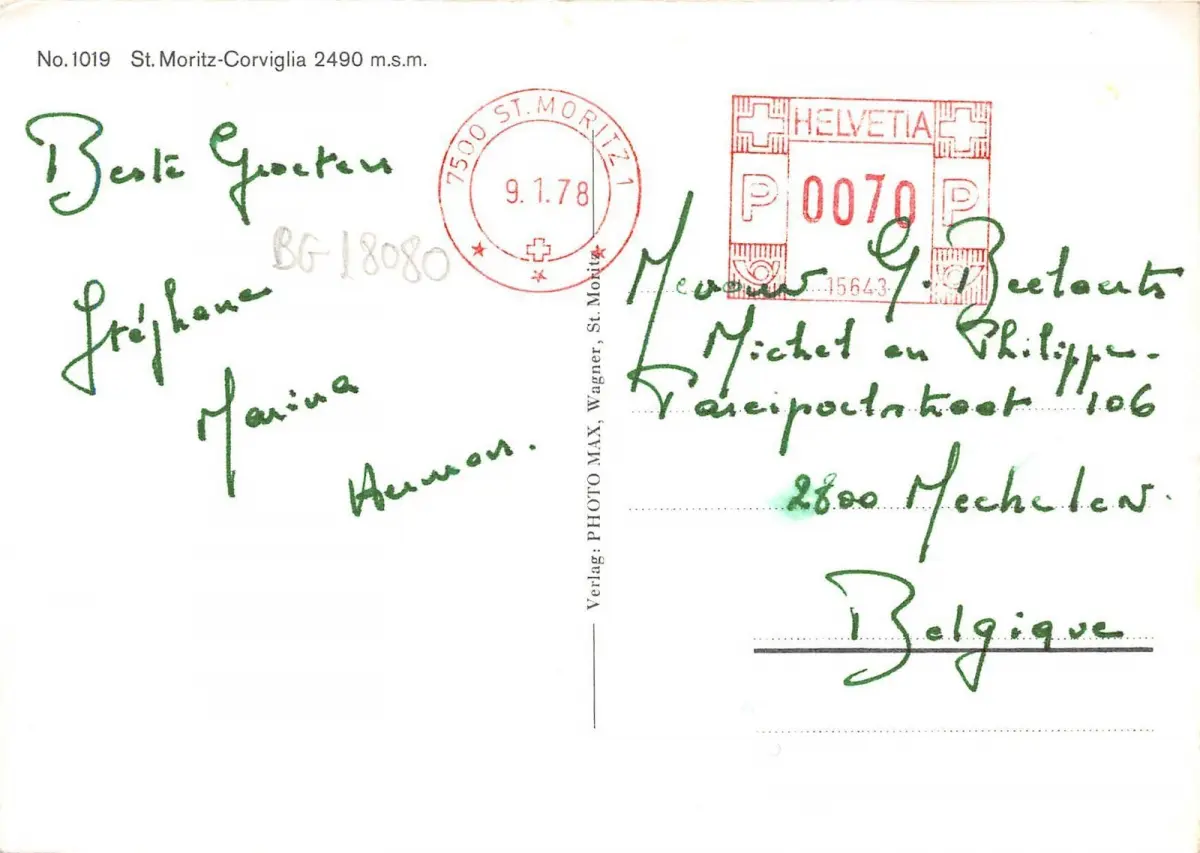 No. 1019 St. Moritz-Corviglia 2490 m.s.m.
Beste Groeten
BG 18080
Stéphane
Marina
Herman.
7500 ST. MORITZ 1
9.1.78
HELVETIA
P 0070 P
15643
Mevouw G. Beelaerts
Michel en Philippe -
106
2800 Mechelen.
Belgique
Verlag: PHOTO MAX, Wagner, St. Moritz